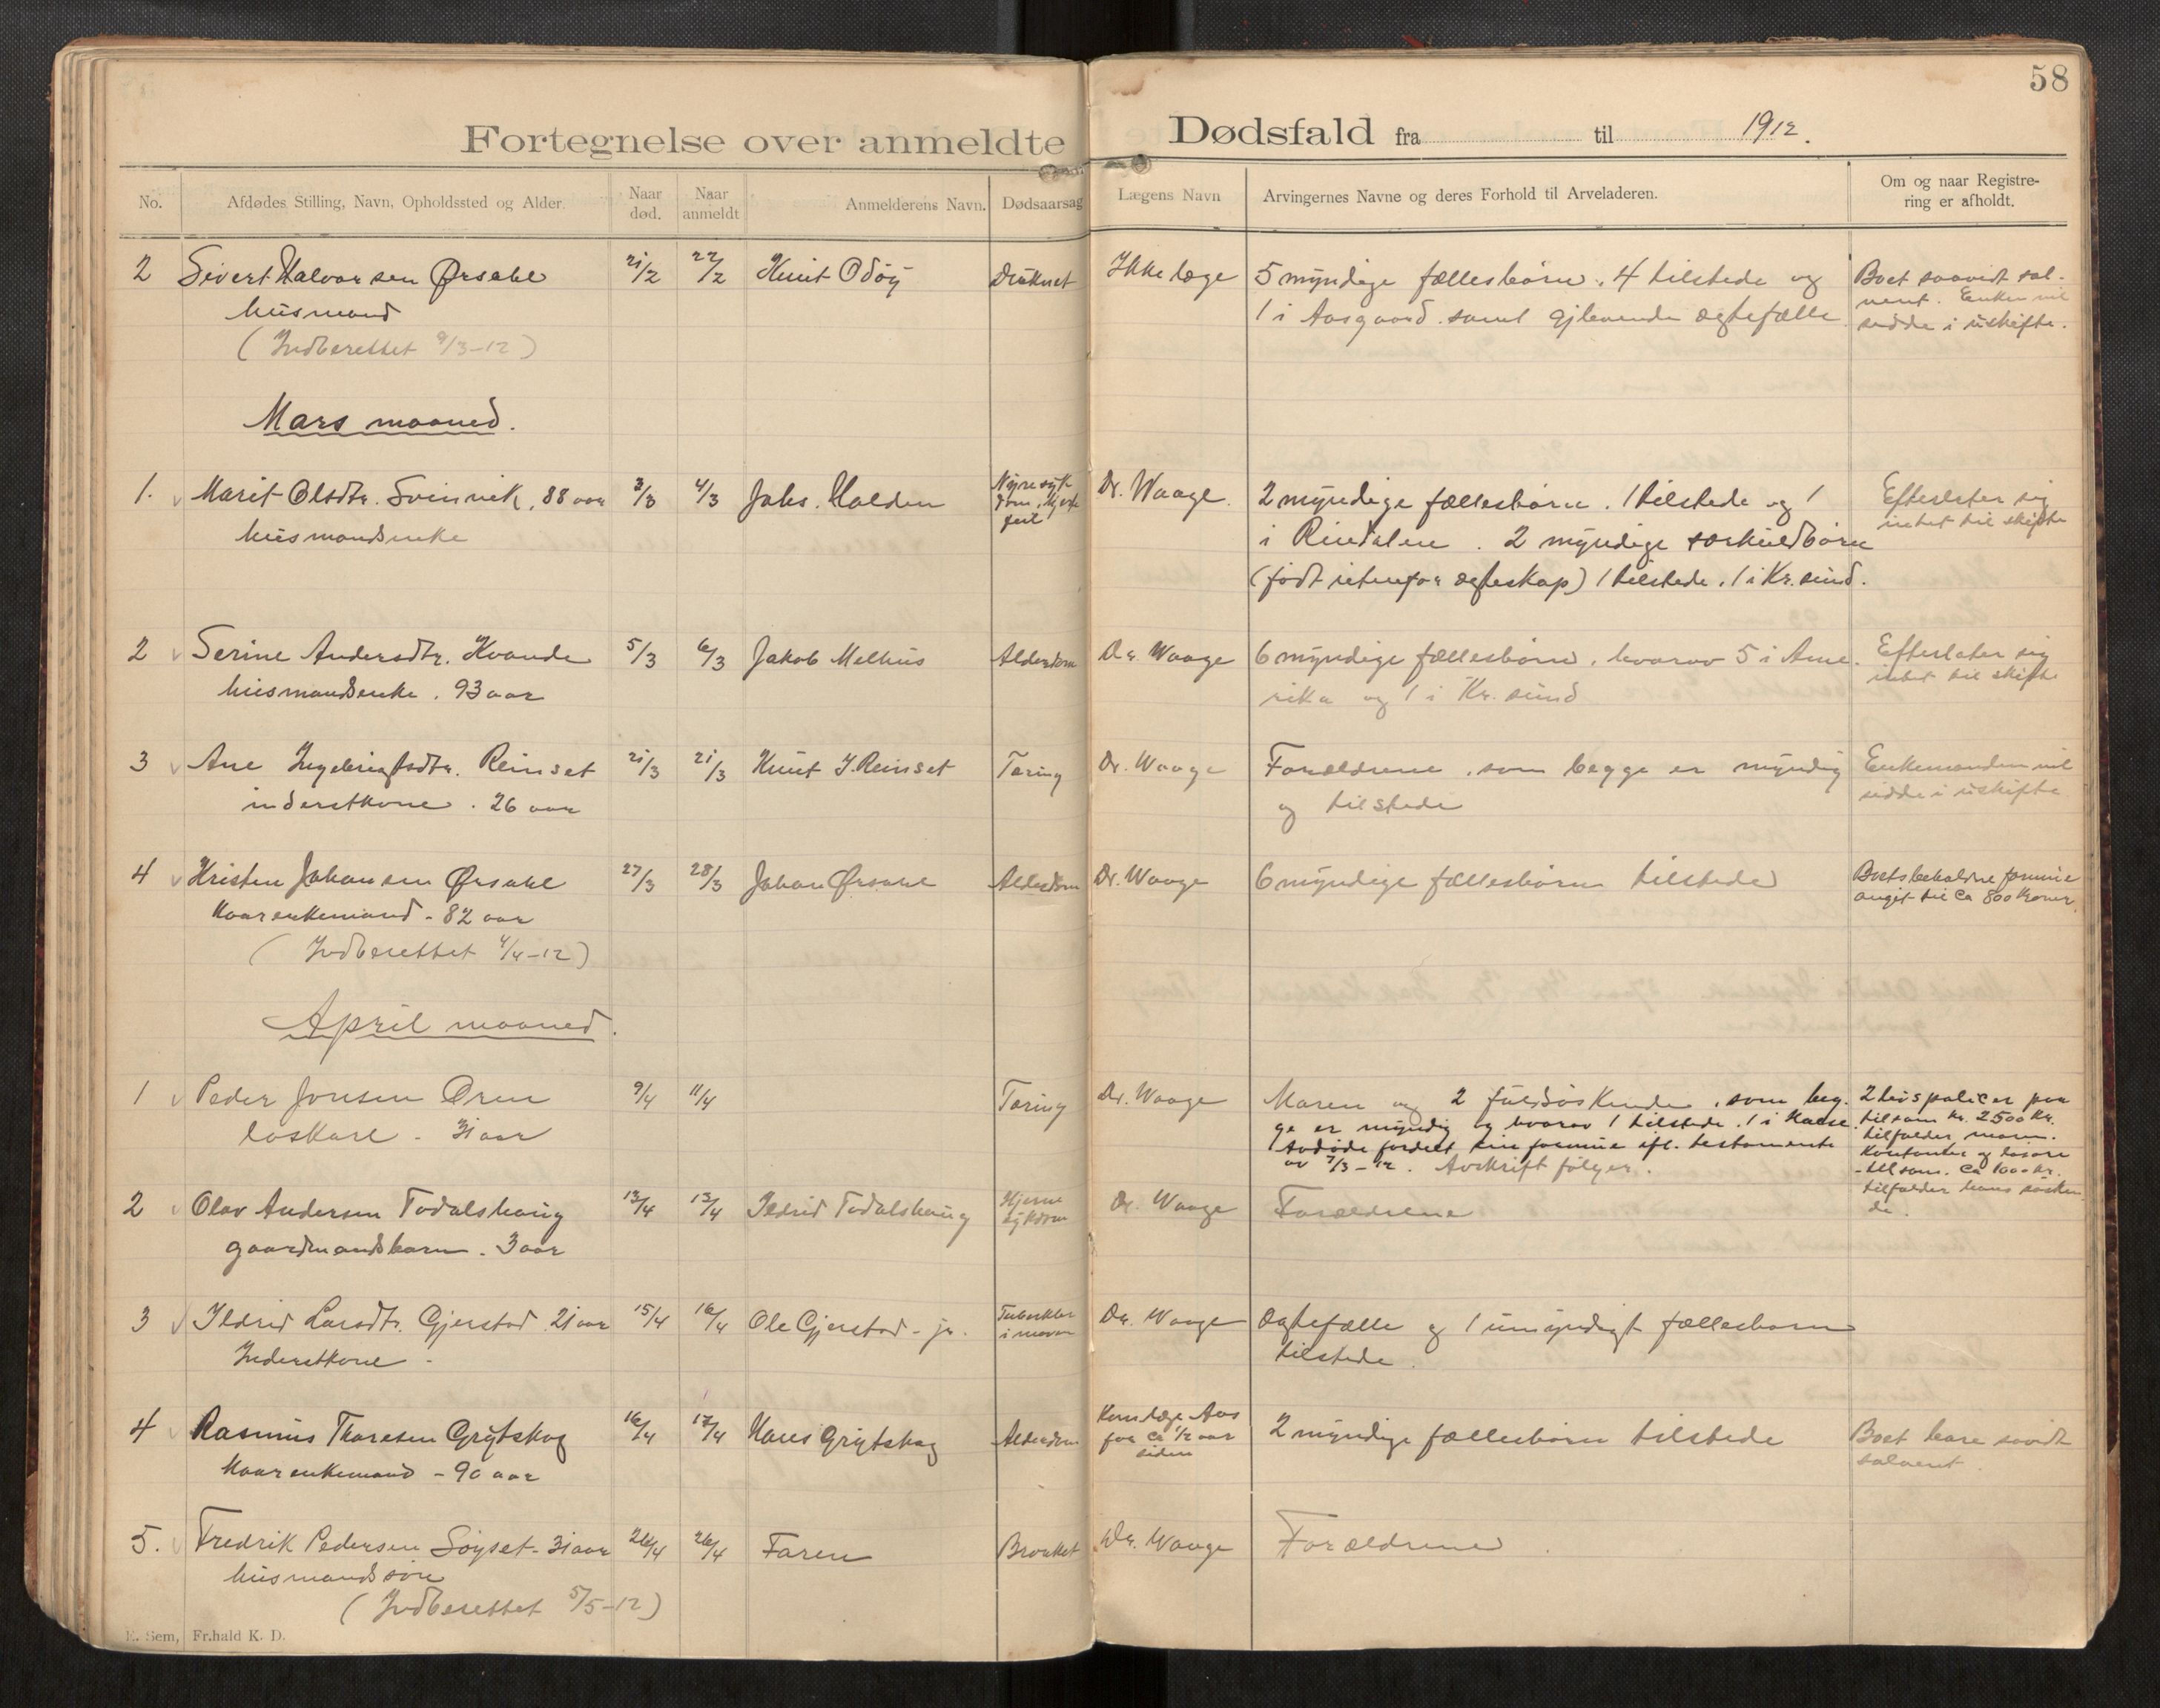 58
Fortegnelse over anmeldte Dødsfald fra til 1912.
No. Afdødes Stilling, Navn, Opholdssted og Alder. Naar død. Naar anmeldt Anmelderens Navn. Dødsaarsag Lægens Navn Arvingernes Navne og deres Forhold til Arveladeren. Om og naar Registrering er afholdt.
2 Sivert Halvorsen Ørsahl 21/2 22/2 Knut Odöy Druknet Ikke læge 5 myndige fællesbörn, 4 tilstede og Boet saavidt sol-
husmand 1 i Aasgaard samt gjlevende ægtefælle vent. Enken vil
(Indberettet 9/3-12) sidde i uskifte.
Mars maaned.
1. Marit Olsdtr. Svinvik, 88 aar 3/3 4/3 Johs. Halden Nyresyk- Dr. Waage. 2 myndige fællesbörn. 1 tilstede og 1 Efterlater sig
husmandsenke dom, Hjerte i Rindalen. 2 myndige særkuldbörn intet til skifte
feil (födt utenfor ægteskap) 1 tilstede, 1 i Kr.sund.
2 Serine Andersdtr. Kvande 5/3 6/3 Jakob Melhus Alderdom Dr. Waage 6 myndige fællesbörn, hvorav 5 i Ame- Efterlater sig
husmandsenke. 93 aar rika og 1 i Kr.sund intet til skifte
3 Ane Ingebrigtsdtr. Reinset 21/3 21/3 Knut J. Reinset Tæring Dr. Waage Forældrene, som begge er myndig Enkemanden vil
inderstkone. 26 aar og tilstede sidde i uskifte
4 Kristen Johansen Ørsahl 27/3 28/3 Johan Ørsahl Alderdom Dr. Waage 6 myndige fællesbörn tilstede Boets beholdne formue
Kaarenkemand - 82 aar angit til ca 800 kroner.
(Indberettet 4/4-12)
April maaned.
1 Peder Jonsen Ören 9/4 11/4 Tæring Dr. Waage Moren og 2 fuldsöskende, som beg- 2 livspoliser paa
löskarl - 31 aar ge er myndig og hvorav 1 tilstede, 1 i tilsam kr. 2500 kr.
Avdöde fordelt sin formue ifl. testamente tilfalder moren.
av 7/3-12. Avskrift fölger. Kontanter og lösöre
tilsam. ca 1000 kr.
tilfalder hans sösken-
de.
2 Olav Andersen Todalshaug 13/4 13/4 Ildrid Todalshaug Hjerne Dr. Waage Forældrene
gaardmandsbarn. 3 aar sykdom
3 Ildrid Larsdtr. Gjerstad 21 aar 15/4 16/4 Ole Gjerstad - jr. Tuberkler Dr. Waage Ægtefælle og 1 umyndigt fællesbarn
Inderstkone - i maven tilstede.
4 Rasmus Thoresen Grytskog 16/4 17/4 Hans Grytskog Alderdom Kom.læge Aas 2 myndige fællesbörn tilstede Boet bare saavidt
Kaarenkemand - 90 aar for ca 1/2 aar solvent.
siden
5. Fredrik Pedersen Söyset - 31 aar 26/4 26/4 Faren Dr. Waage Forældrene.
husmandssön
(Indberettet 5/5-12)
E. Sem, Fr.hald K. D.